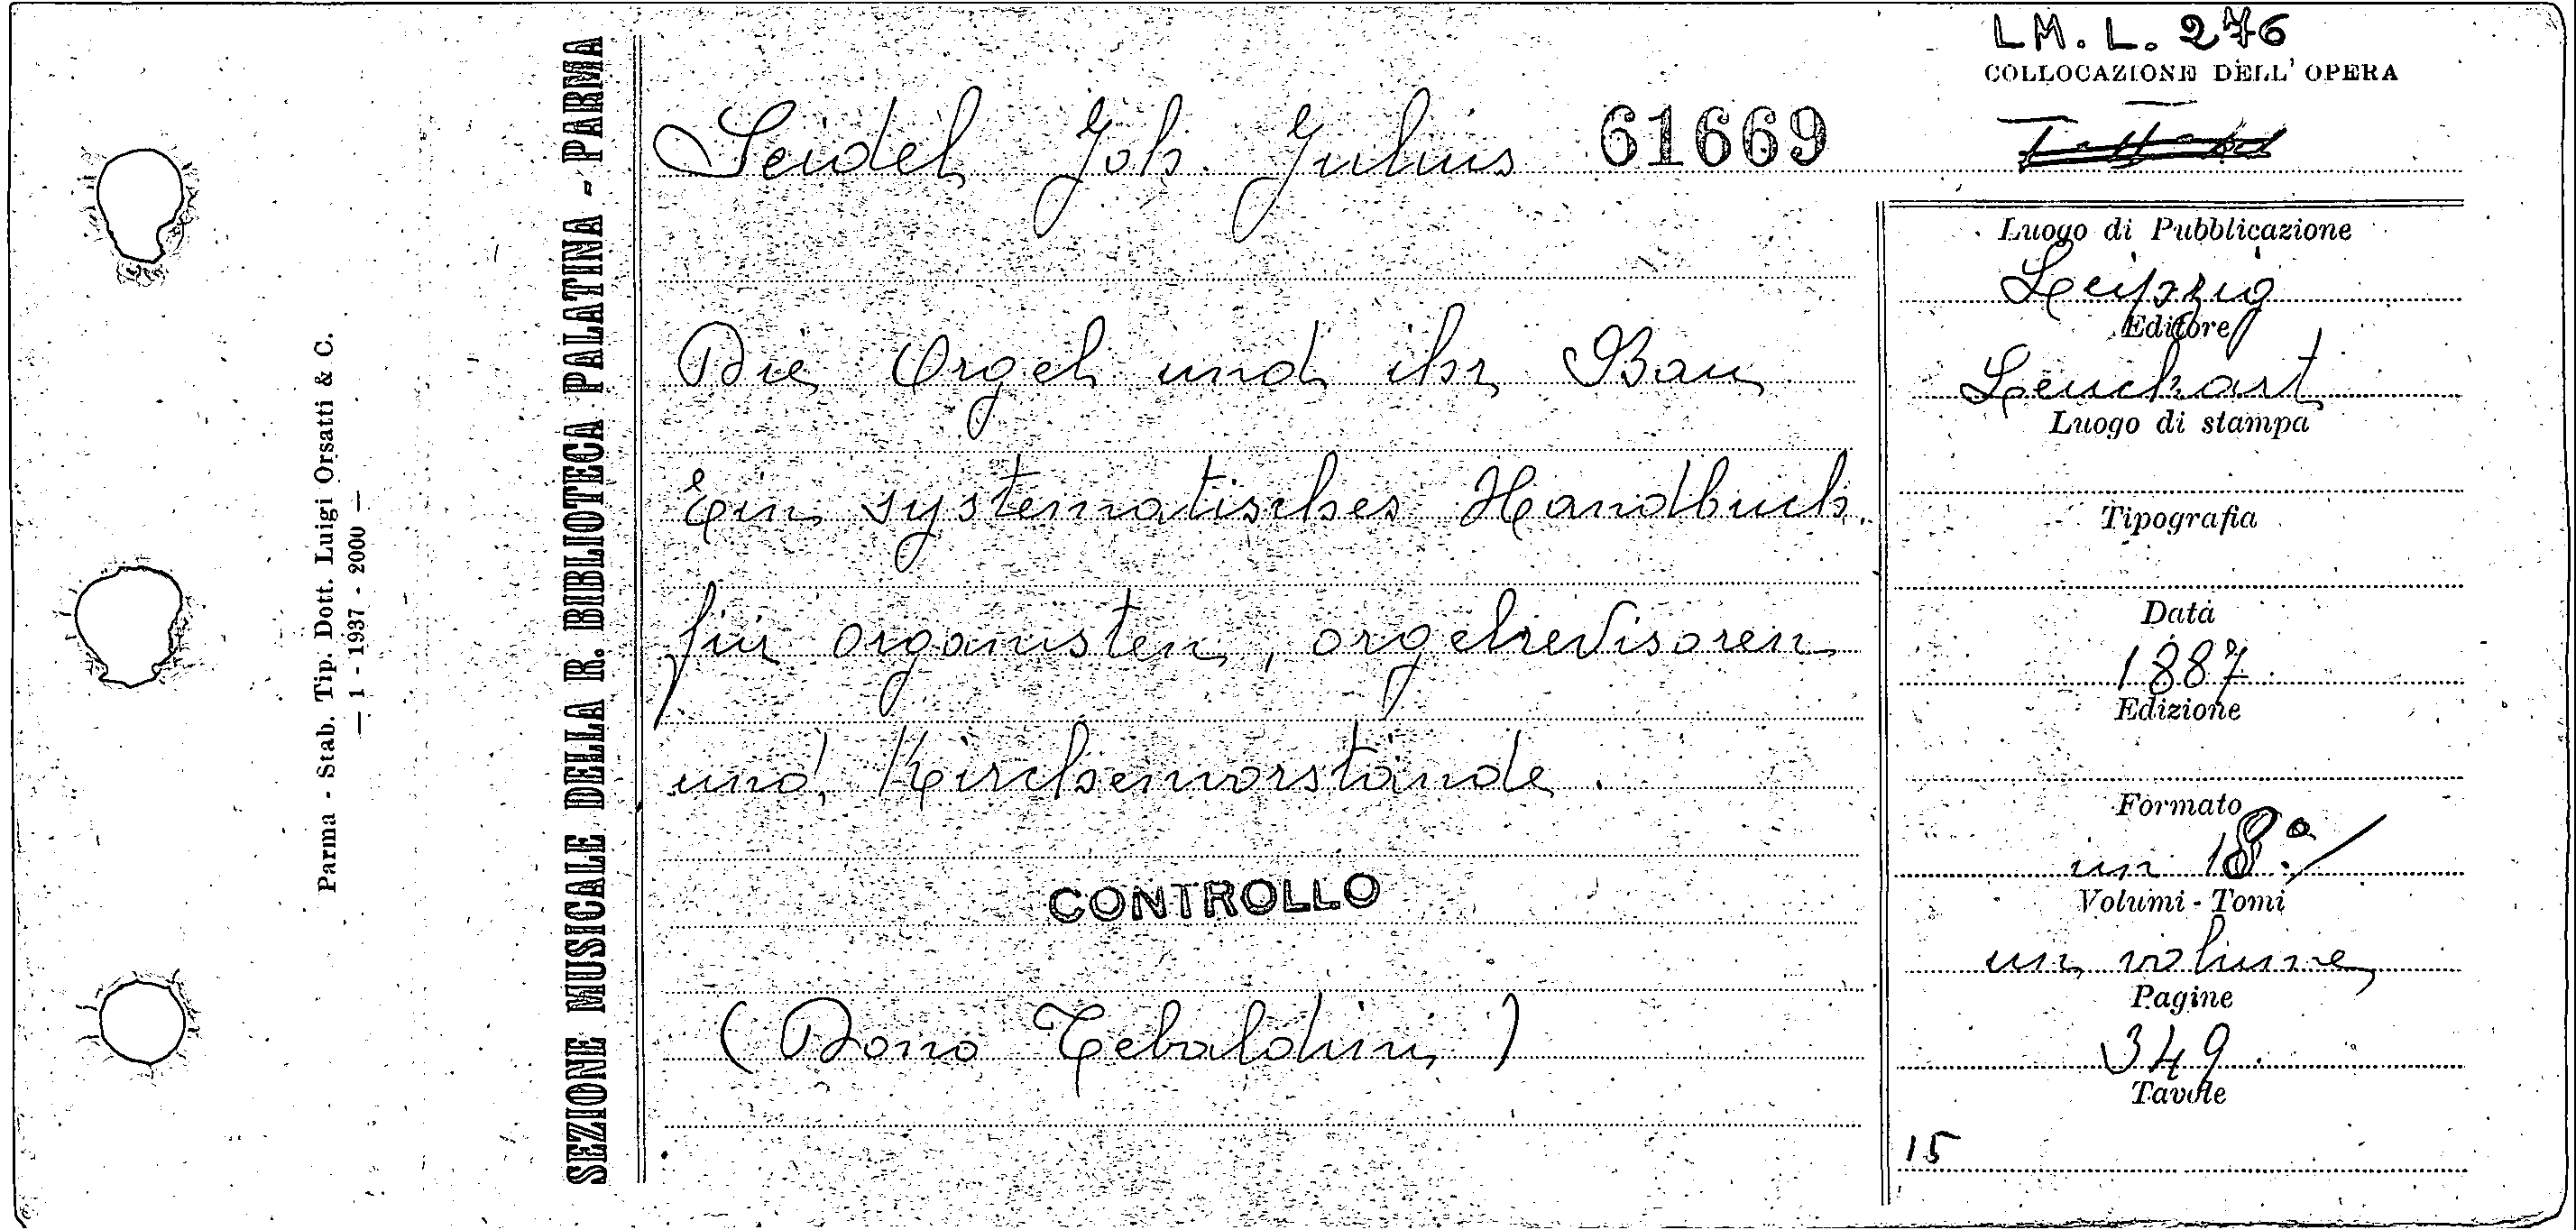 LM. L. 276
COLLOCAZIONE DELL' OPERA
Seidel Joh. Julius 61669
Die Orgel und ihr Bau
Ein systematisches Handbuch
für organisten, orgelrevisoren
und Kirchenvorstände.
CONTROLLO
(Dono Tebaldini)
Luogo di Pubblicazione
Leipzig
Editore
Leuckart
Luogo di stampa
Tipografia
Data
1887
Edizione
Formato
in 18.°
Volumi - Tomi
un volume
Pagine
349
Tavole
15
SEZIONE MUSICALE DELLA R. BIBLIOTECA PALATINA - PARMA
Parma - Stab. Tip. Dott. Luigi Orsatti & C.
— 1 - 1937 - 2000 —